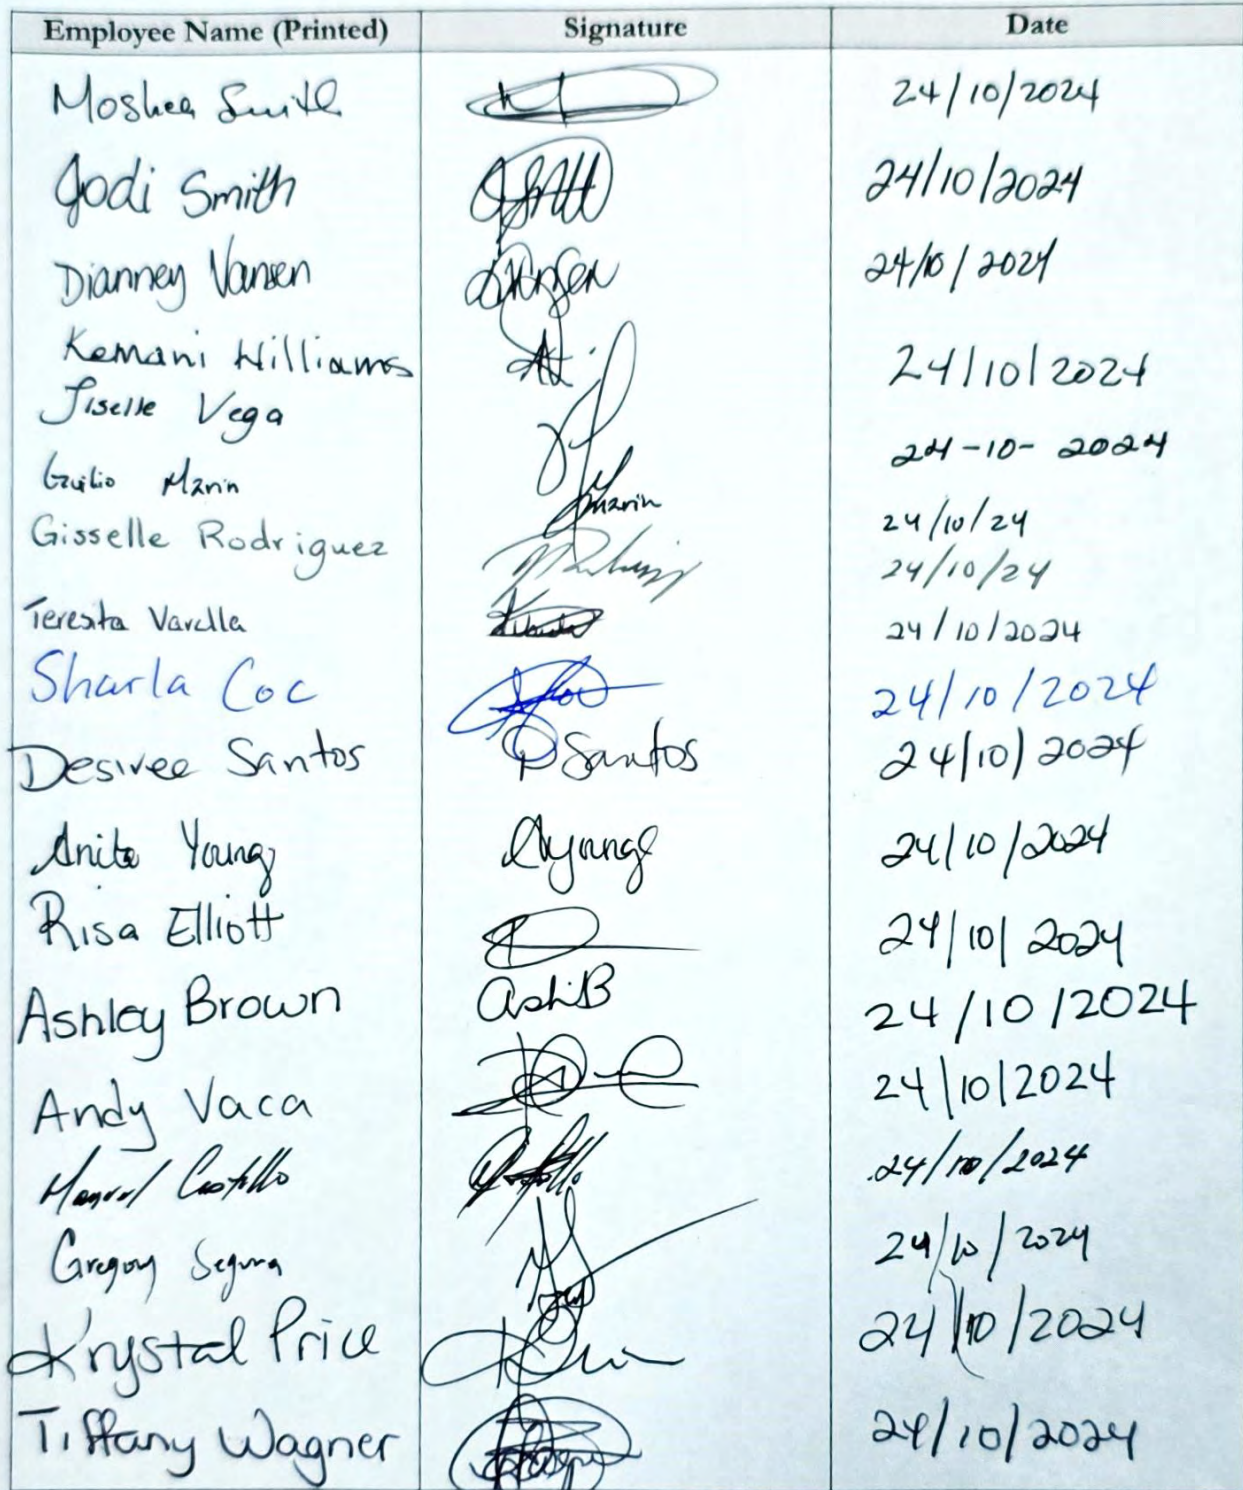 Employee Name (Printed) Signature Date
Moshea Smith 24/10/2024
Jodi Smith JSmith 24/10/2024
Dianney Vansen DVansen 24/10/2024
Kemani Williams 24/10/2024
Jiselle Vega 24-10-2024
Giulio Marin GMarin 24/10/24
Gisselle Rodriguez 24/10/24
Teresita Varella 24/10/2024
Sharla Coc 24/10/2024
Desiree Santos D Santos 24/10/2024
Anita Young AYoung 24/10/2024
Risa Elliott 24/10/2024
Ashley Brown AshB 24/10/2024
Andy Vaca 24/10/2024
Manuel Castillo 24/10/2024
Gregory Segura 24/10/2024
Krystal Price 24/10/2024
Tiffany Wagner 24/10/2024